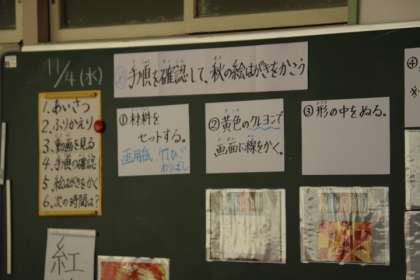 11/4(水)
手順を確認して、秋の絵はがきをかこう
1.あいさつ
2.ふりかえり
3.動画を見る
4.手順の確認
5.絵はがきをかく
6.次の時間は?
①材料を
セットする。
画用紙
②黄色のクレヨンで
画面に線をかく。
③形の中をぬる。
紅